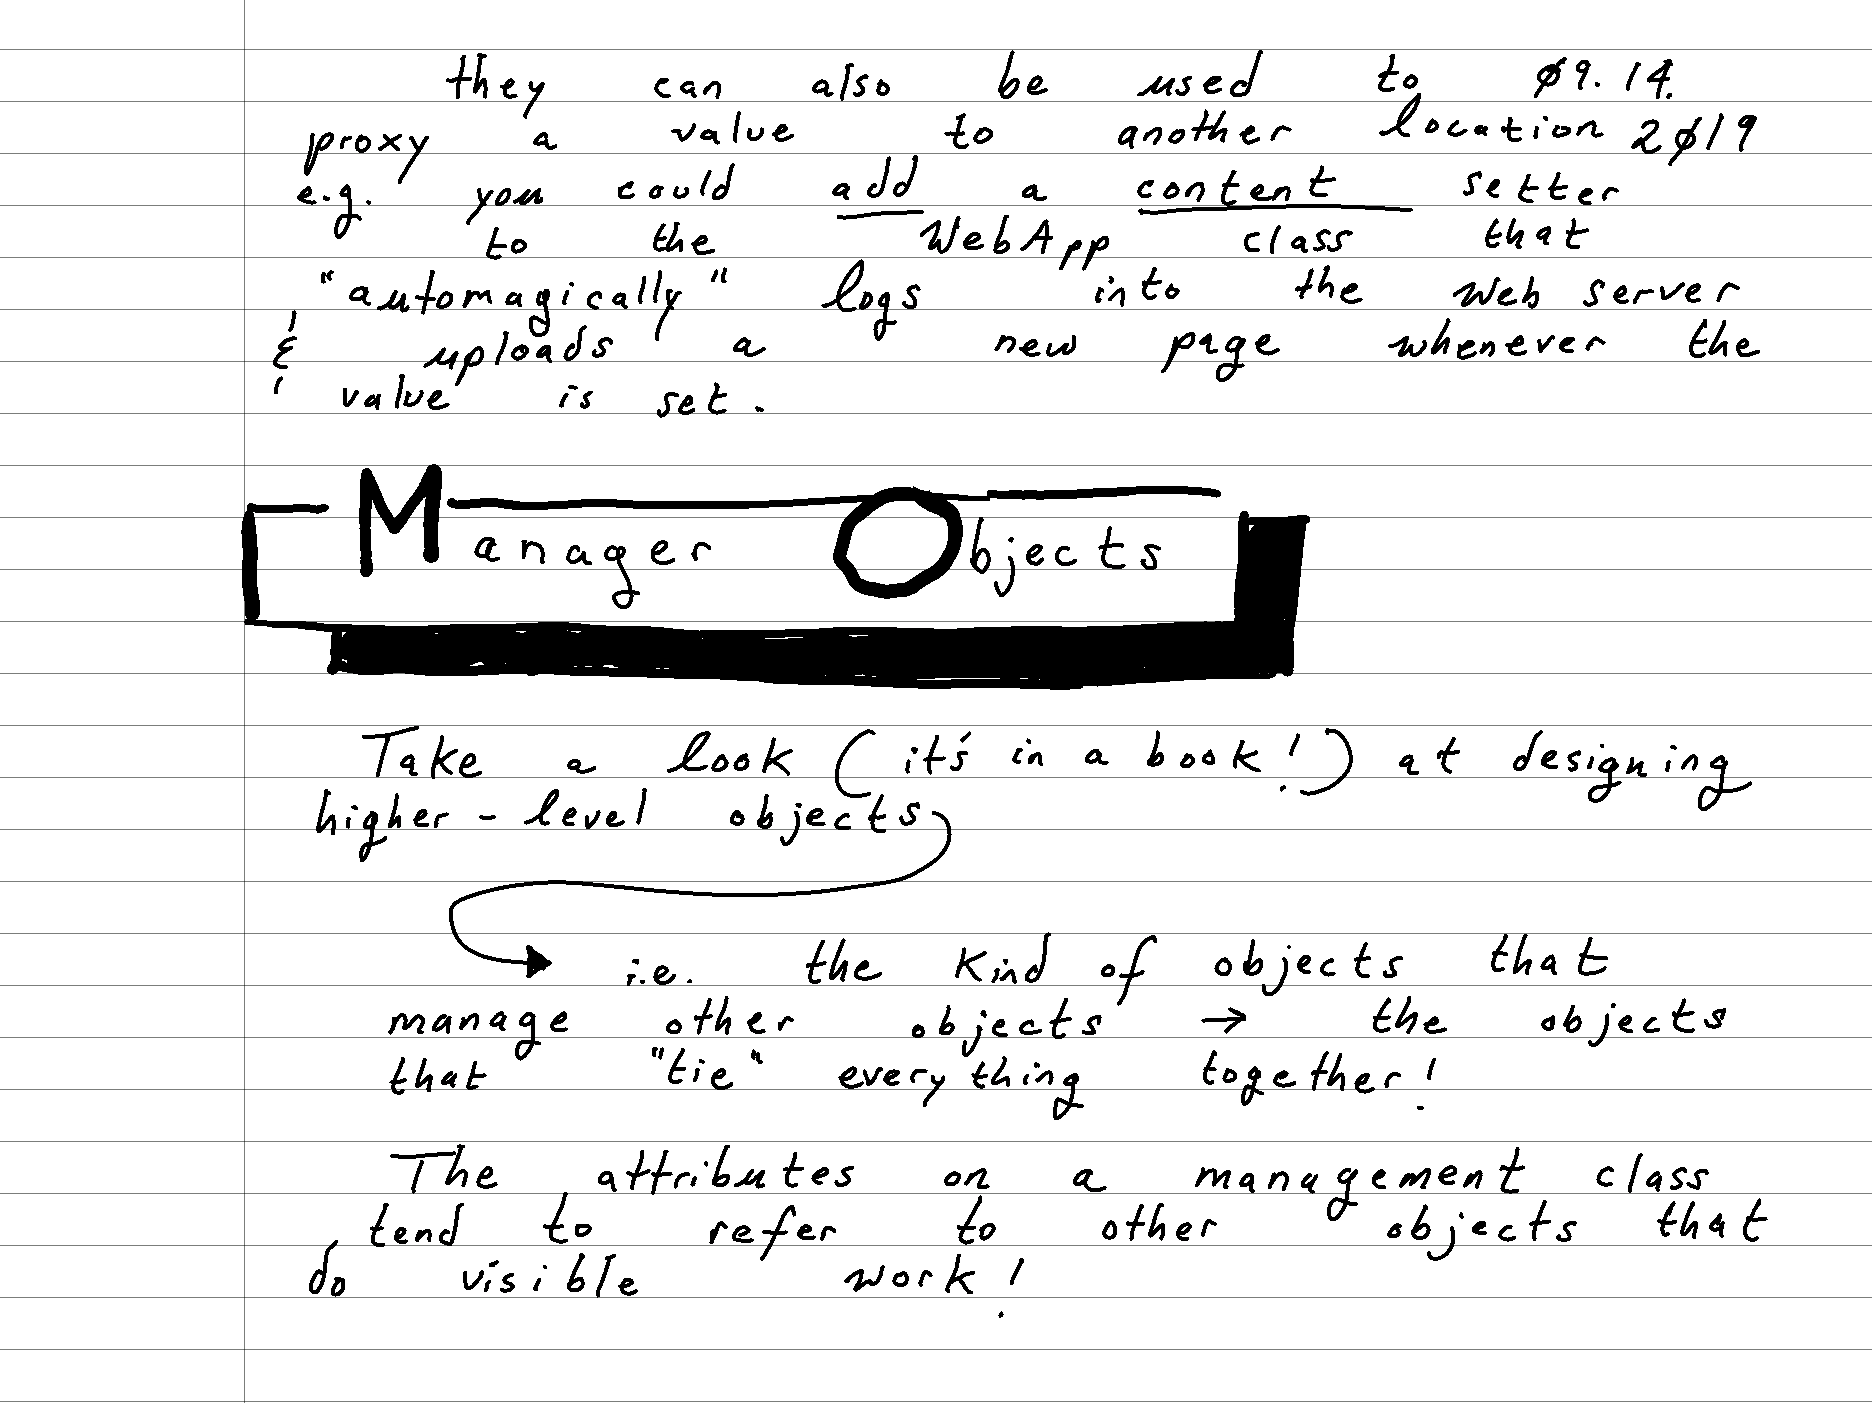 they can also be used to ø9.14.
proxy a value to another location 2ø19
e.g. you could add a content setter
to the WebApp class that
"automagically" logs into the web server
& uploads a new page whenever the
value is set.
Manager Objects
Take a look (it's in a book!) at designing
higher-level objects
i.e. the kind of objects that
manage other objects → the objects
that "tie" everything together!
The attributes on a management class
tend to refer to other objects that
do visible work!